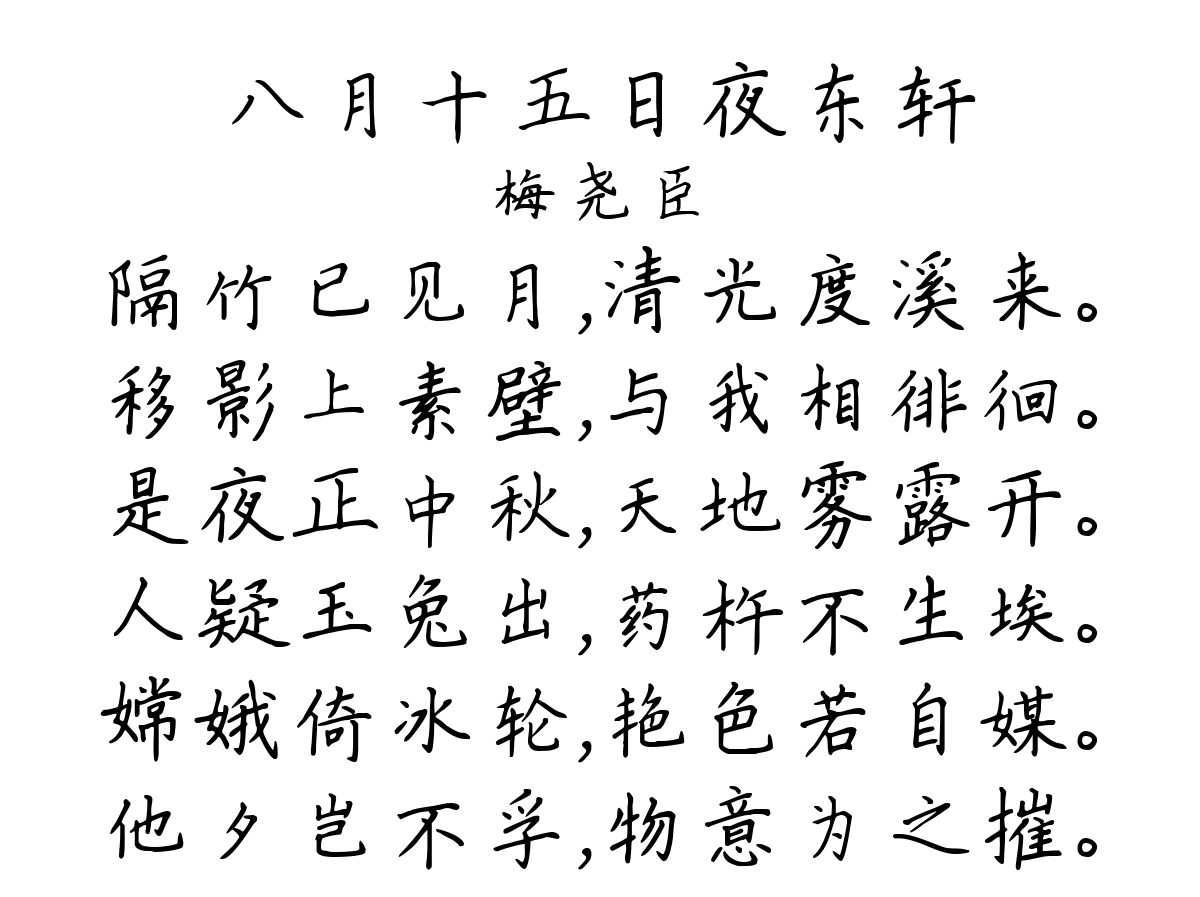 八月十五日夜东轩
梅尧臣
隔竹已见月,清光度溪来。
移影上素壁,与我相徘徊。
是夜正中秋,天地雾露开。
人疑玉兔出,药杵不生埃。
嫦娥倚冰轮,艳色若自媒。
他夕岂不孚,物意为之摧。